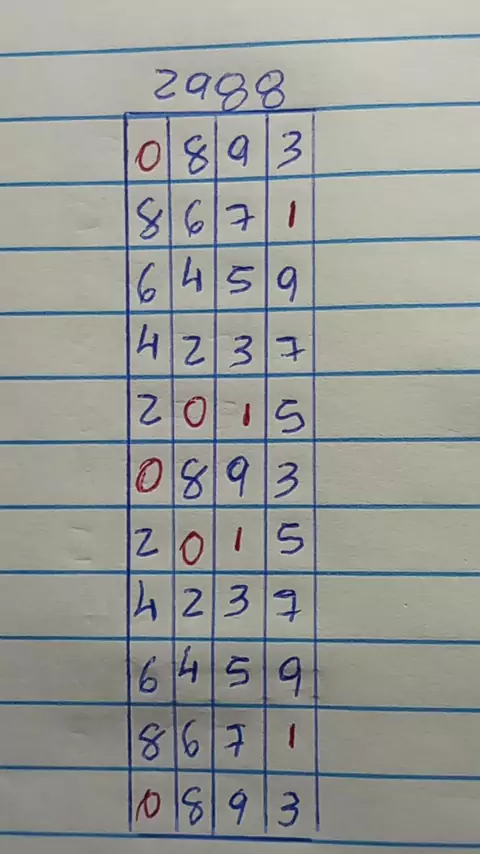 2988
0 8 9 3
8 6 7 1
6 4 5 9
4 2 3 7
2 0 1 5
0 8 9 3
2 0 1 5
4 2 3 7
6 4 5 9
8 6 7 1
0 8 9 3